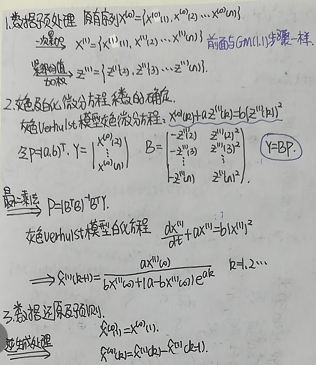 1.数据预处理 原有序列X⁽⁰⁾={x⁽⁰⁾(1), x⁽⁰⁾(2) ... x⁽⁰⁾(n)}
一次累加 X⁽¹⁾={x⁽¹⁾(1), x⁽¹⁾(2) ... x⁽¹⁾(n)} 前面与GM(1.1)步骤一样.
紧邻均值 加权 Z⁽¹⁾={z⁽¹⁾(2), z⁽¹⁾(3) ... z⁽¹⁾(n)}.
2.灰色白化微分方程系数的确定.
灰色Verhulst模型灰色微分方程: x⁽⁰⁾(k)+az⁽¹⁾(k)=b(z⁽¹⁾(k))²
令P=(a,b)ᵀ. Y= x⁽⁰⁾(2) x⁽⁰⁾(3) ⋮ x⁽⁰⁾(n) B= -z⁽¹⁾(2) z⁽¹⁾(2)² -z⁽¹⁾(3) z⁽¹⁾(3)² ⋮ -z⁽¹⁾(n) z⁽¹⁾(n)² Y=BP.
最小二乘法 P=(BᵀB)⁻¹BᵀY.
灰色Verhulst模型白化方程 dx⁽¹⁾/dt+ax⁽¹⁾=b(x⁽¹⁾)²
⇒ x̂⁽¹⁾(k+1)= ax⁽¹⁾(0) / bx⁽¹⁾(0)+(a-bx⁽¹⁾(0))eᵃᵏ k=1.2...
3.数据还原及预测.
x̂⁽⁰⁾(1)=x⁽⁰⁾(1).
x̂⁽⁰⁾(k)=x̂⁽¹⁾(k)-x̂⁽¹⁾(k-1).